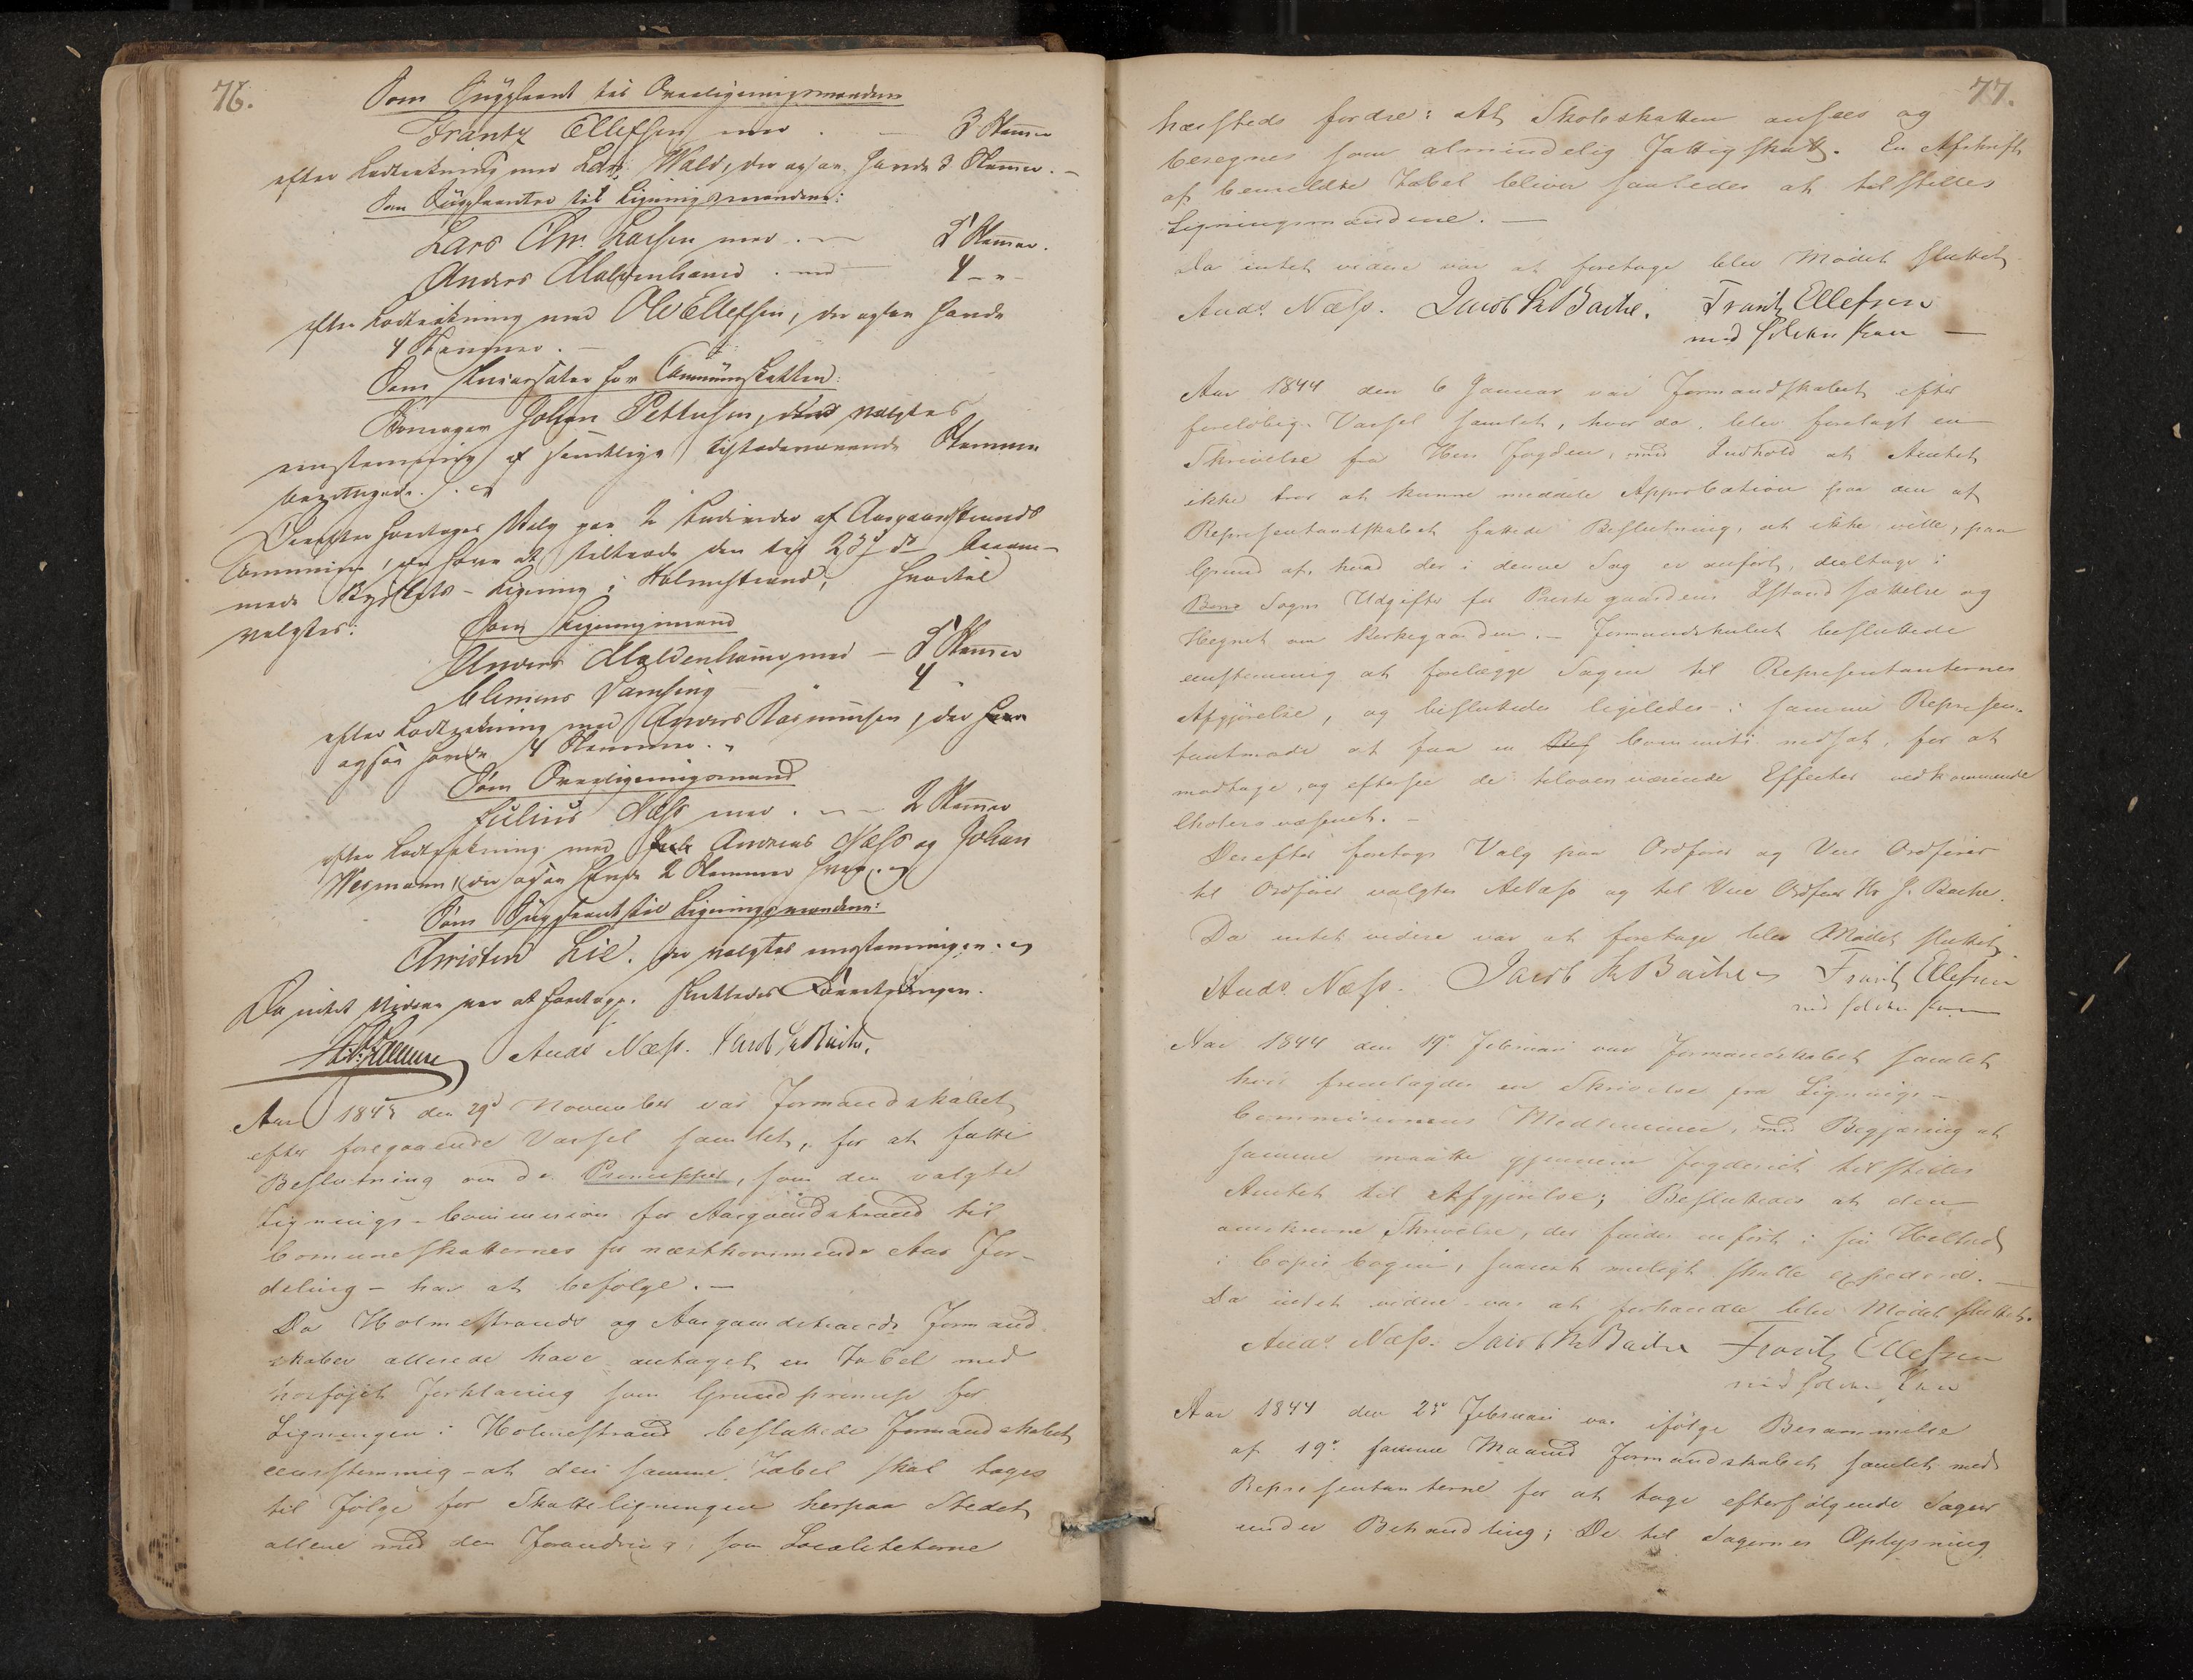 76.
Som Suppleant til Overligningsmanden
Frantz Ellefsen med 3 Stemmer
efter Lodtrækning med Lars Wold, der ogsaa havde 3 Stemmer. —
Som Suppleanter til Ligningsmændene:
Lars Chr. Larsen med 5 Stemmer.
Anders Moldenhauer med 4 — " —
efter Lodtrækning med Ole Ellefsen, der ogsaa havde
4 Stemmer. —
Som for Communeskatten:
Johan Pettersen, valgtes
eenstemmig af samtlige tilstedeværende Stemme
berettigede.
Derefter foretoges Valg paa 2 Individer af Aasgaardstrands
Commune, der have at tiltræde den til 23de ds beram-
mede Ligning i Holmestrand, hvortil
valgtes:
Som Ligningsmænd
Anders Moldenhauer med — 5 Stemmer
Clemens 4 "
efter Lodtrækning med Anders Rasmussen, der
ogsaa havde 4 Stemmer. "
Som Overligningsmand
Julius Næss med 2 Stemmer
efter Lodtrækning med Andreas Næss og Johan
Wegmann, der ogsaa havde 2 Stemmer hver.
Som Suppleant til Ligningsmændene:
Christen Lie. der valgtes eenstemmigen.
Da intet videre var at foretage, sluttedes Forretningen.
Ands Næss. Jacob Kr Bache.
Aar 1843 den 29d November var Formandskabet
efter foregaaende Varsel samlet, for at fatte
Beslutning om de Principper, som den valgte
Lignings-Commission for Aasgaardstrand til
Communeskatternes for næstkommende Aar For-
deling — har at befølge. —
Da Holmestrands og Aasgaardstrands Formand
skaber allerede have antaget en Tabel med
hosføjet Forklaring som Grundprincip for
Ligningen i Holmestrand besluttede Formandskabet
eenstemmig — at den samme Tabel skal tages
til Følge for Skatteligningen herpaa Stedet
allene med den Forandring, som Localiteterne
77.
hærsteds fordre: at Skoleskatten ansees og
beregnes som almindelig Fattigskatt. En Afskrift
af bemeldte Tabel bliver saaledes at tilstilles
Ligningsmændene. —
Da intet videre var at foretage blev Mødet sluttet
Ands Næss. Jacob Kr Bache. Frantz Ellefsen
med holden Pen —
Aar 1844 den 6 Januar var Formandskabet efter
foreløbig Varsel samlet, hvor da blev forelagt en
Skrivelse fra Herr Fogden, med Indhold at Amtet
ikke tror at kunne meddele Approbation paa den af
Repræsentantskabet fattede Beslutning, at ikke ville, paa
Grund af, hvad der i denne Sag er anført, deeltage i
Borre Sogns Udgifter for Præstegaardens Istandsættelse og
Hegnet om Kirkegaarden. — Formandskabet besluttede
eenstemmig at forelægge Sagen til Repræsentanternes
Afgjørelse, og besluttedes ligeledes i samme Repræsen-
tantmøde at faa en Committe nedsat, for at
modtage, og efterse de tiloversværende Effecter vedkommende
Choleravæsenet. —
Derefter foretoges Valg paa Ordfører og Vice Ordfører
til Ordfører valgtes A Næss og til Vice Ordfører Kr J. Bache.
Da intet videre var at foretage blev Mødet sluttet
Ands Næss. Jacob Kr Bache Frantz Ellefsen
med holden Pen
Aar 1844 den 19de Februari var Formandskabet samlet
hvor fremlagdes en Skrivelse fra Lignings-
Commissionens Medlemmer, med Begjæring at
samme maatte gjennem Fogderiet tilstilles
Amtet til Afgjørelse; Besluttedes at den
omskrevne Skrivelse, der findes anført i sin Helhed
i Copiebogen, snarest muligt skulle expederes. —
Da intet videre var at forhandle blev Mødet sluttet.
Ands Næss. Jacob Kr Bache Frantz Ellefsen
med holden Pen
Aar 1844 den Februari var ifølge Berammelse
af 19de samme Maaned Formandskabet samlet med
Repræsentanterne for at tage efterfølgende Sager
under Behandling; De til Sagernes Oplysning